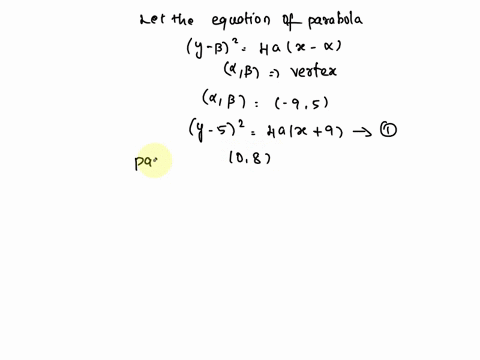 Let the equation of parabola
(y-β)² = 4a(x-α)
(α,β) => vertex
(α,β) = (-9,5)
(y-5)² = 4a(x+9) → ①
pa (0,8)